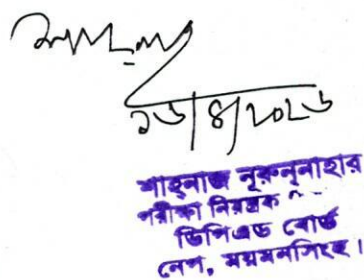 ১৬/৪/২০২৬
শাহ্‌নাজ নূরুন্‌নাহার
পরীক্ষা নিয়ন্ত্রক
ডিপিএড বোর্ড
নেপ, ময়মনসিংহ।